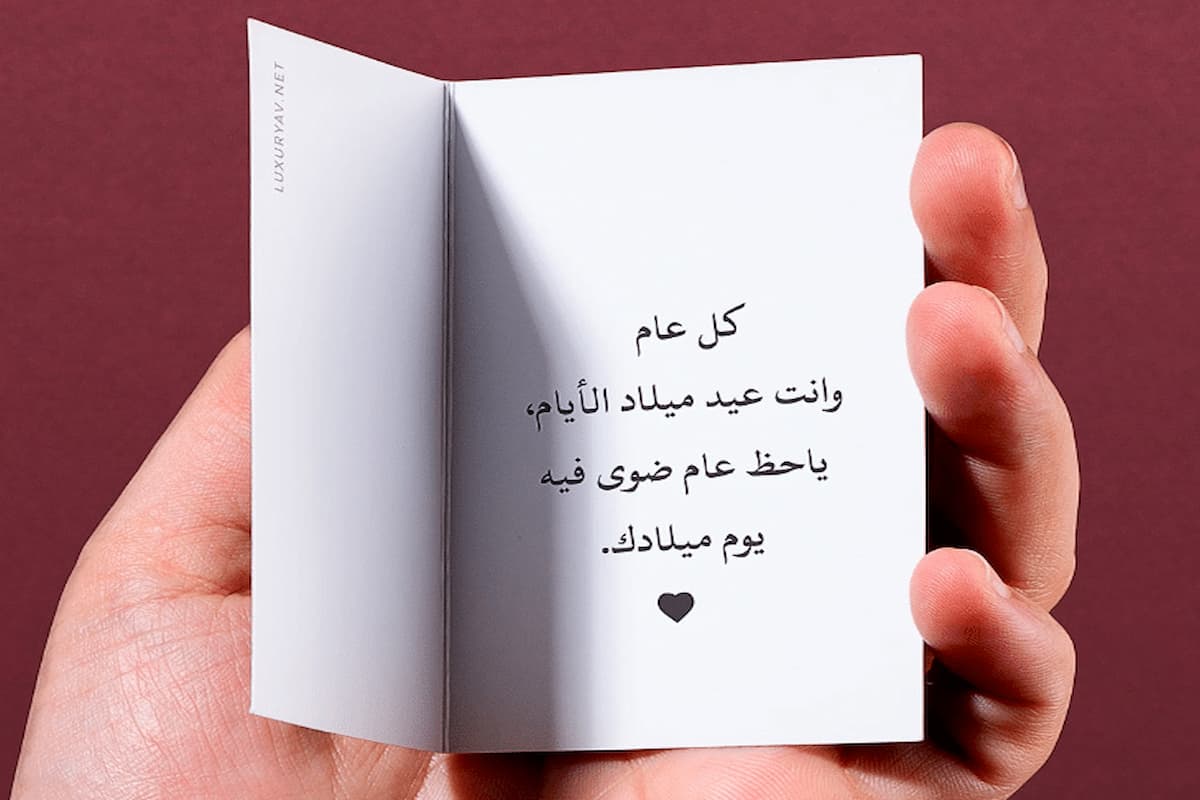 LUXURYAV.NET
كل عام
وانت عيد ميلاد الأيام،
ياحظ عام ضوى فيه
يوم ميلادك.